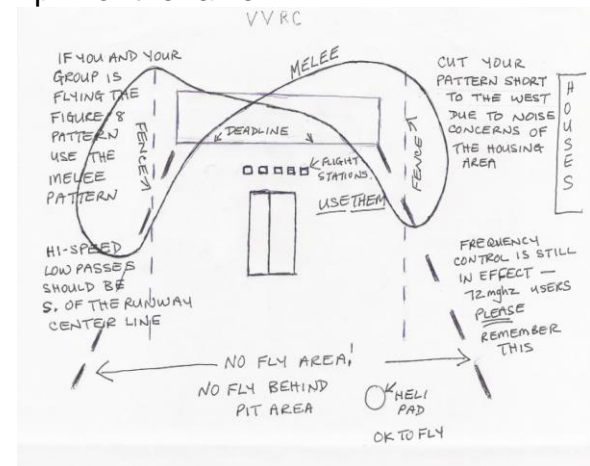 VVRC
IF YOU AND YOUR
GROUP IS
FLYING THE
FIGURE 8
PATTERN
USE THE
MELEE
PATTERN
MELEE
CUT YOUR
PATTERN SHORT
TO THE WEST
DUE TO NOISE
CONCERNS OF
THE HOUSING
AREA
HOUSES
FENCE
DEADLINE
FENCE
FLIGHT
STATIONS.
USE THEM
HI-SPEED
LOW PASSES
SHOULD BE
S. OF THE RUNWAY
CENTER LINE
FREQUENCY
CONTROL IS STILL
IN EFFECT —
72mghz USERS
PLEASE
REMEMBER
THIS
NO FLY AREA!
NO FLY BEHIND
PIT AREA
HELI
PAD
OK TO FLY